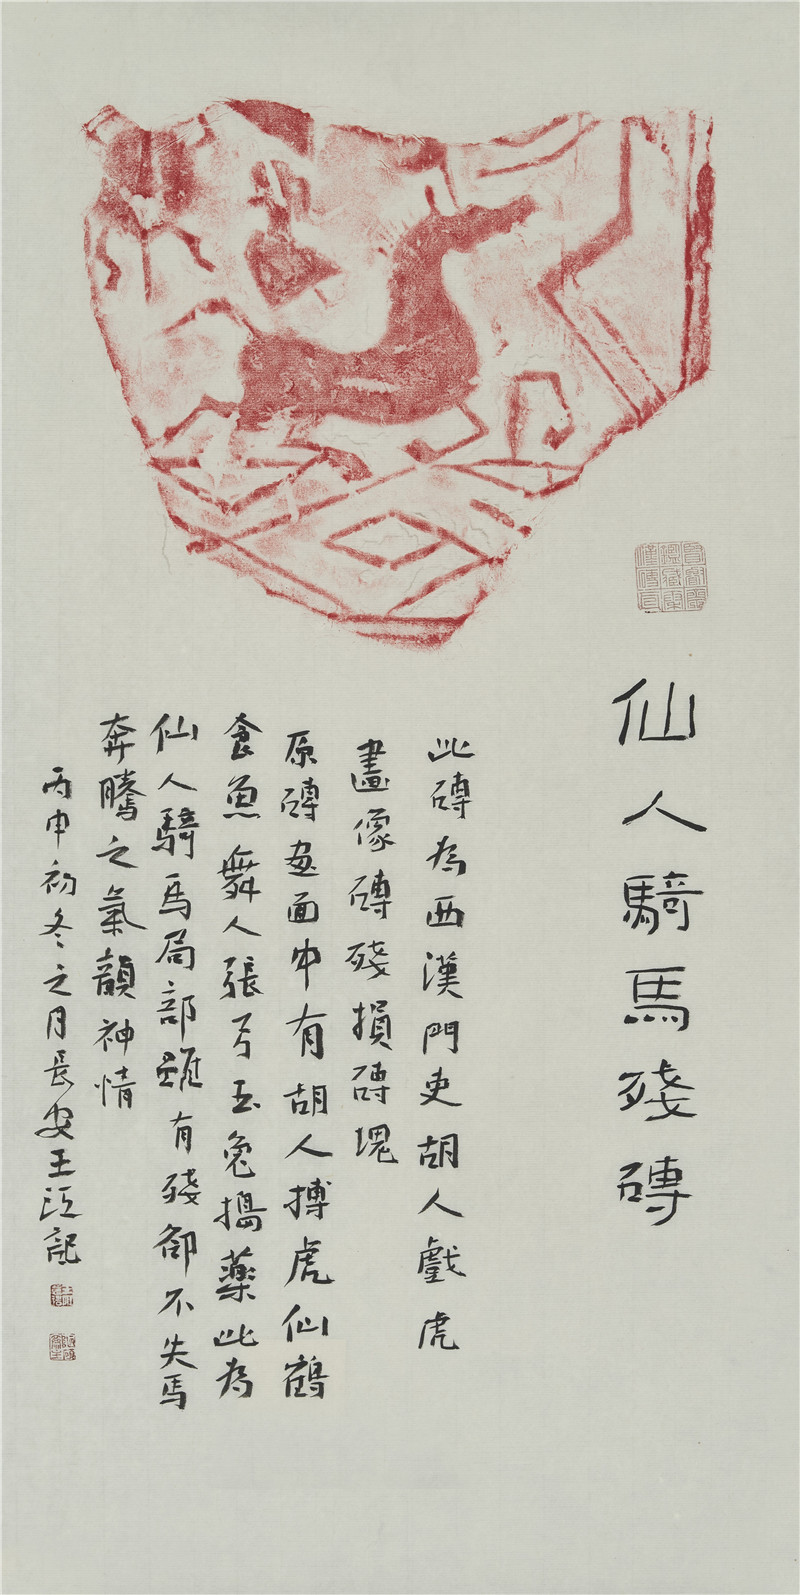 仙人騎馬殘磚
此磚為西漢門吏胡人戲虎
畫像磚殘損磚塊
原磚畫面中有胡人搏虎仙鶴
食魚舞人張弓玉兔搗藥此為
仙人騎馬局部雖有殘卻不失馬
奔騰之氣韻神情
丙申初冬之月長安王江記